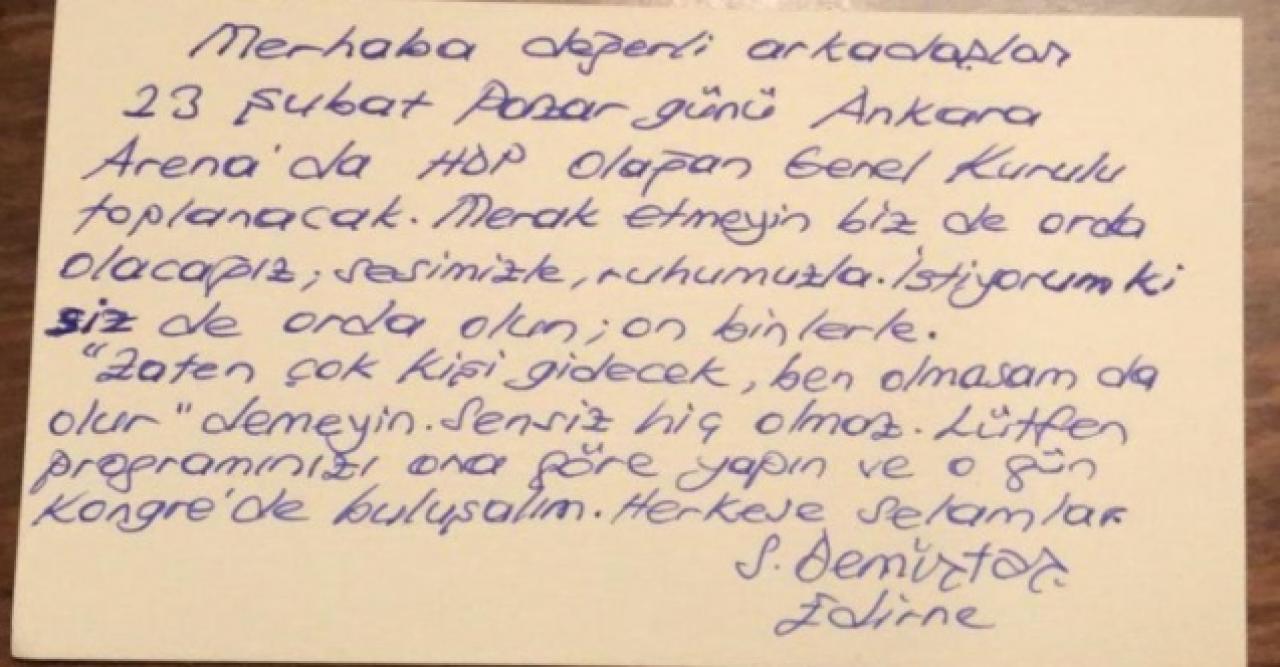 Merhaba değerli arkadaşlar
23 Şubat Pazar günü Ankara
Arena'da HDP Olağan Genel Kurulu
toplanacak. Merak etmeyin biz de orda
olacağız; sesimizle, ruhumuzla. İstiyorum ki
siz de orda olun; on binlerle.
"Zaten çok kişi gidecek, ben olmasam da
olur" demeyin. Sensiz hiç olmaz. Lütfen
programınızı ona göre yapın ve o gün
Kongre'de buluşalım. Herkese selamlar
S. Demirtaş
Edirne